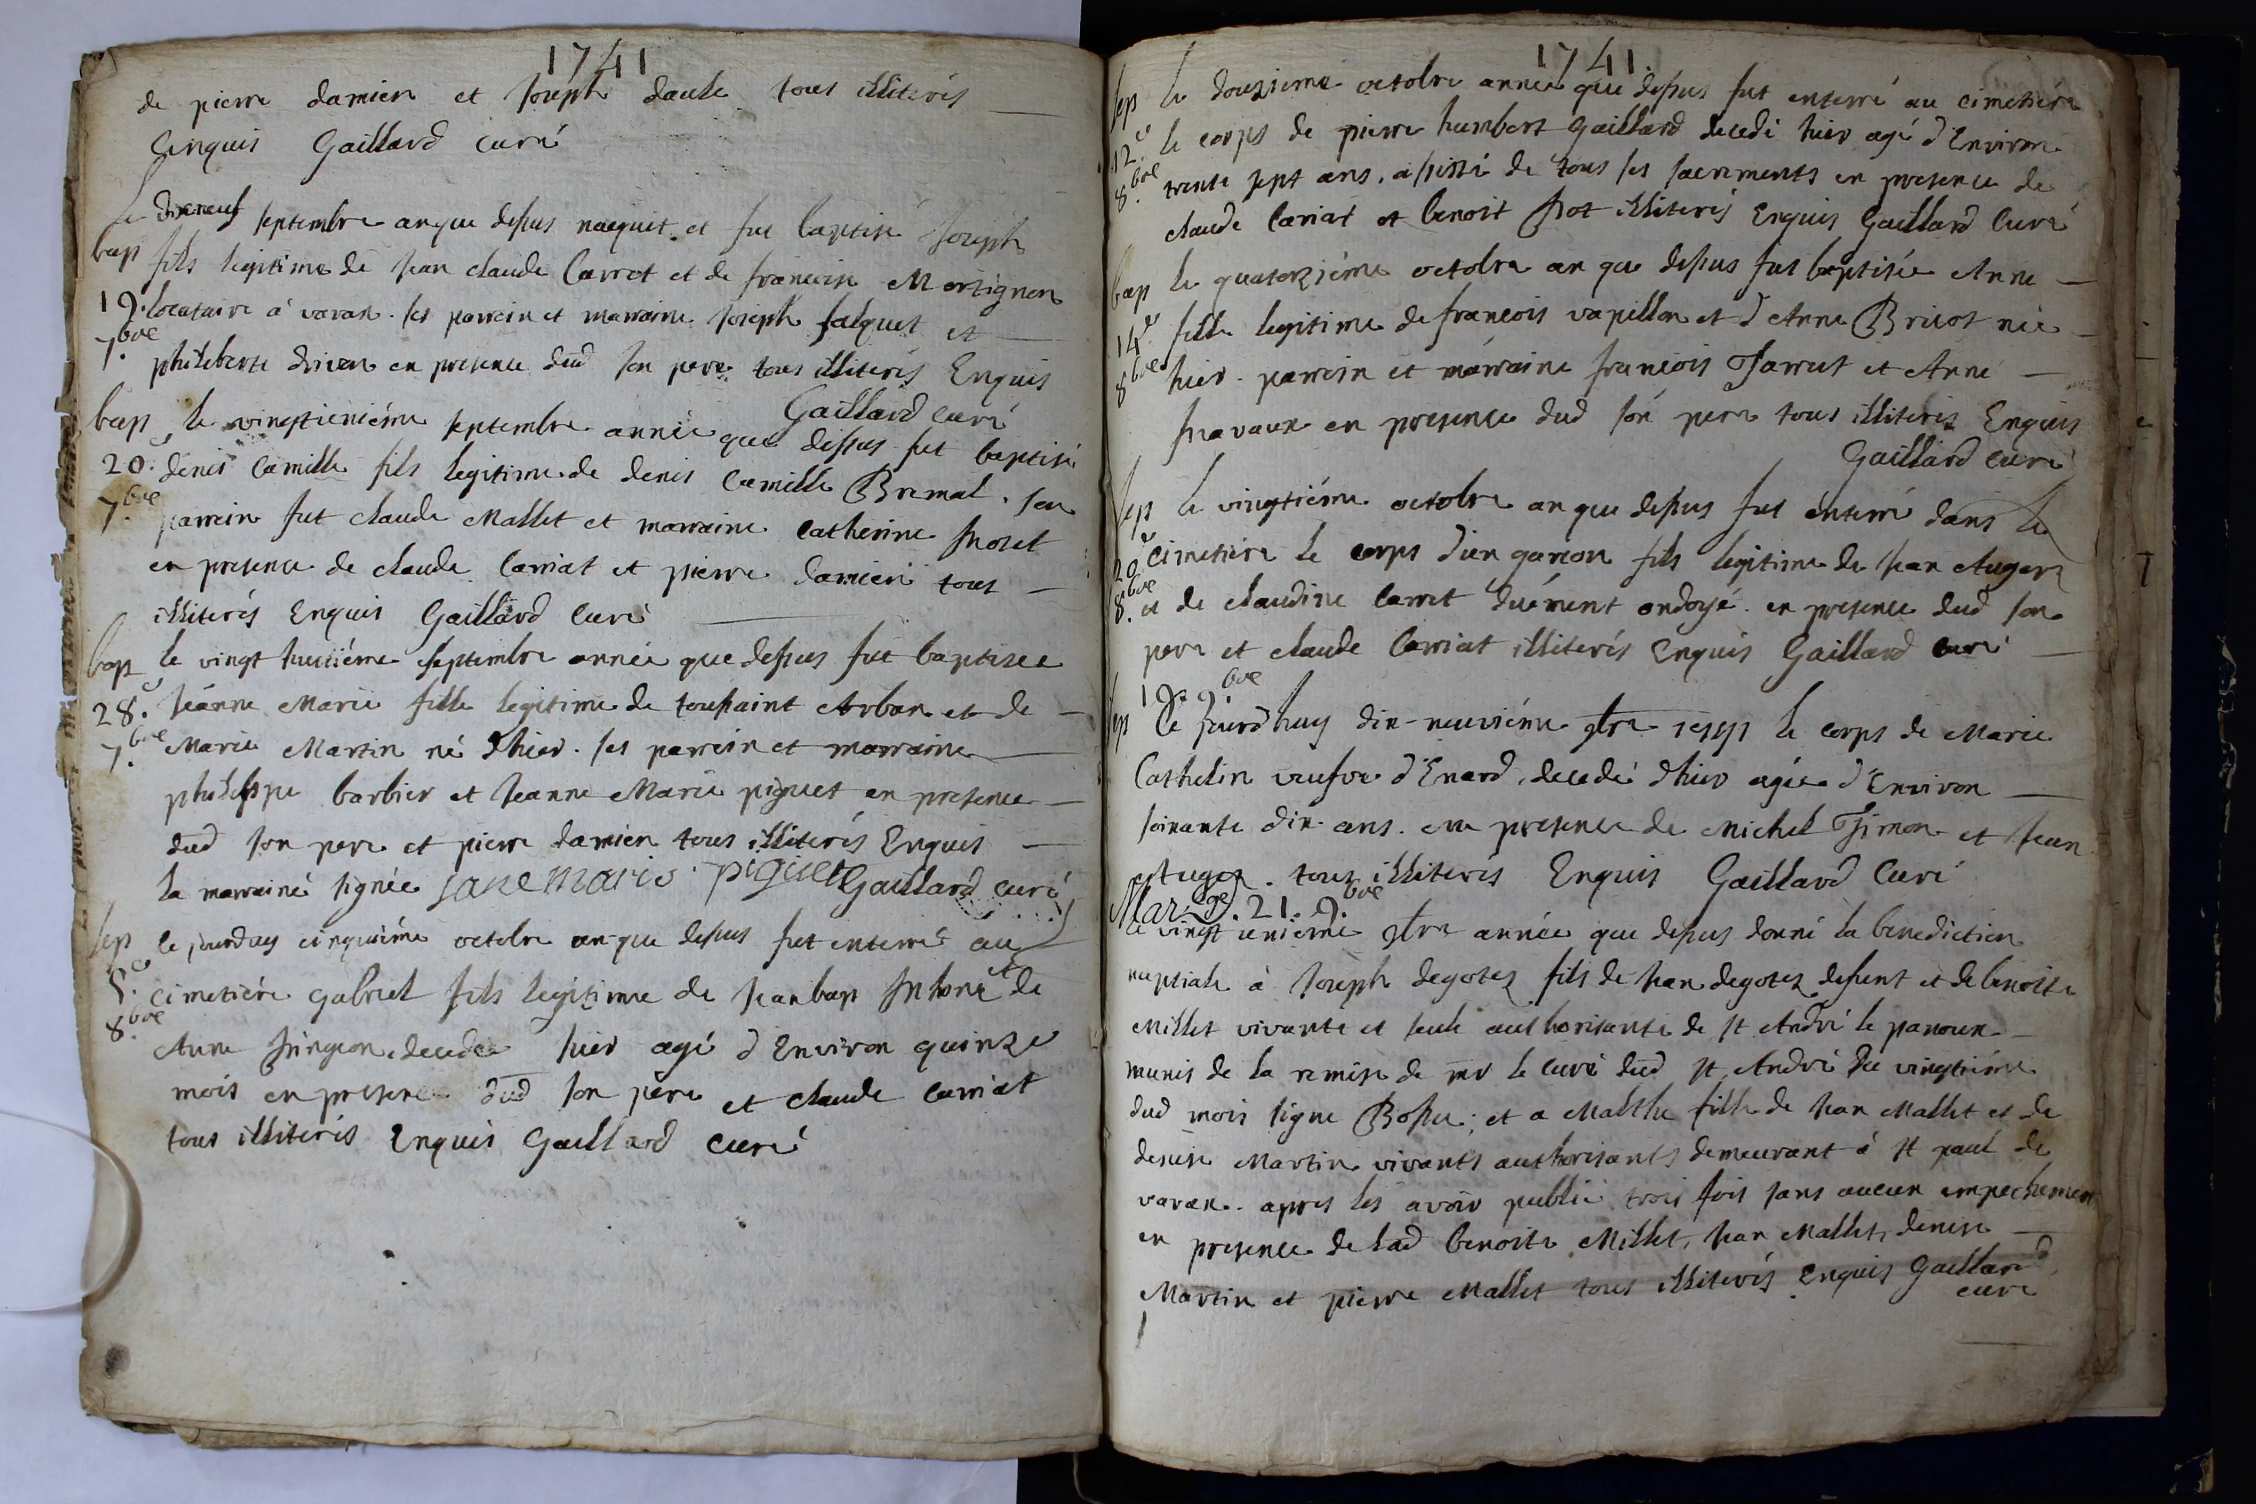 1741
de pierre damien et Joseph daule tous illiterés
Enquis Gaillard curé
le dixneuf septembre an que dessus naequit et fut baptisé Joseph
bap fils legitime de Jean claude Carrot et de francoise Mortignon
19. locataire à varax. ses parrein et marraine Joseph falquet et
7.bre philiberte en presence dud son pere tous illiterés Enquis
Gaillard curé
bap le vingtieniéme septembre année que dessus fut baptisé
20.e denis Camille fils legitime de denis Camille Bremal. son
7.bre parrein fut claude Mallet et marraine catherine
en presence de claude Carriat et pierre damien tous
illiterés Enquis Gaillard curé
bap le vingt huitiéme septembre année que dessus fut baptisée
28.e Jeánne Marie fille legitime de toussaint Arban et de
7.bre Marie Martin né d'hier. ses parrein et marraine
philippe barbier et Jeanne Marie piguet en presence
dud son pere et pierre damien tous illiterés Enquis
la marrainé signée jane marie piguet Gaillard curé
sep ce jourdhuy cinquiéme octobre an que dessus fut enterré au
5.e cimetiére gabriel fils legitime de Jean bap et de
8.bre Anne decedée hier agé d'Environ quinze
mois en presence dud son pére et claude carriat
tous illiterés Enquis Gaillard curé
1741
sep le douzieme octobre année que dessus fut enterré au cimetiére
12.e le corps de pierre humbert Gaillard decedé hier agé d'Environ
8.bre trente sept ans. assisté de tous ses sacrements en presence de
claude Carriat et benoit illiterés Enquis Gaillard Curé
bap le quatorziéme octobre an que dessus fut baptisée Anne
14.e fille legitime de francois vapillon et d'Anne Bricot née
8.bre hier. parrein et márraine francois Jarret et Anne
en presence dud son pere tous illiteris Enquis
Gaillard curé
sep le vingtiéme octobre an que dessus fut énterré dans le
20.e cimetiére le corps d'un garcon fils legitime de Jean Auger
8.bre et de claudine Carret duément ondoyé. en presence dud son
pere et claude Carriat illiterés Enquis Gaillard curé
19. 9.bre
sep Ce jourdhuy dix-neuviéme 9bre 1741 le corps de Marie
Cathelin veufve d'Enard, decedé d'hier agée d'Environ
soixante dix ans. en presence de Michel Simon et Jean
Auger. tous illiterés Enquis Gaillard Curé
Mar.ge. 21. 9.bre
le vingt unieme 9bre année que dessus donné la benediction
nuptiale à Joseph degotez fils de Jean degotez defunt et de benoite
Millet vivante et seule authorisante de st André le panoux
munis de la remise de mr le curé dud st André du vingtiéme
dud mois signe Bossu; et a Malthe fille de Jean Mallet et de
denise Martin vivants authorisants demeurant à st paul de
varax. apres les avoir publié trois fois sans aucun empechement
en presence de lad benoite Millet, Jean Mallet, denise
Martin et pierre Mallet tous illiterés Enquis Gaillard
curé